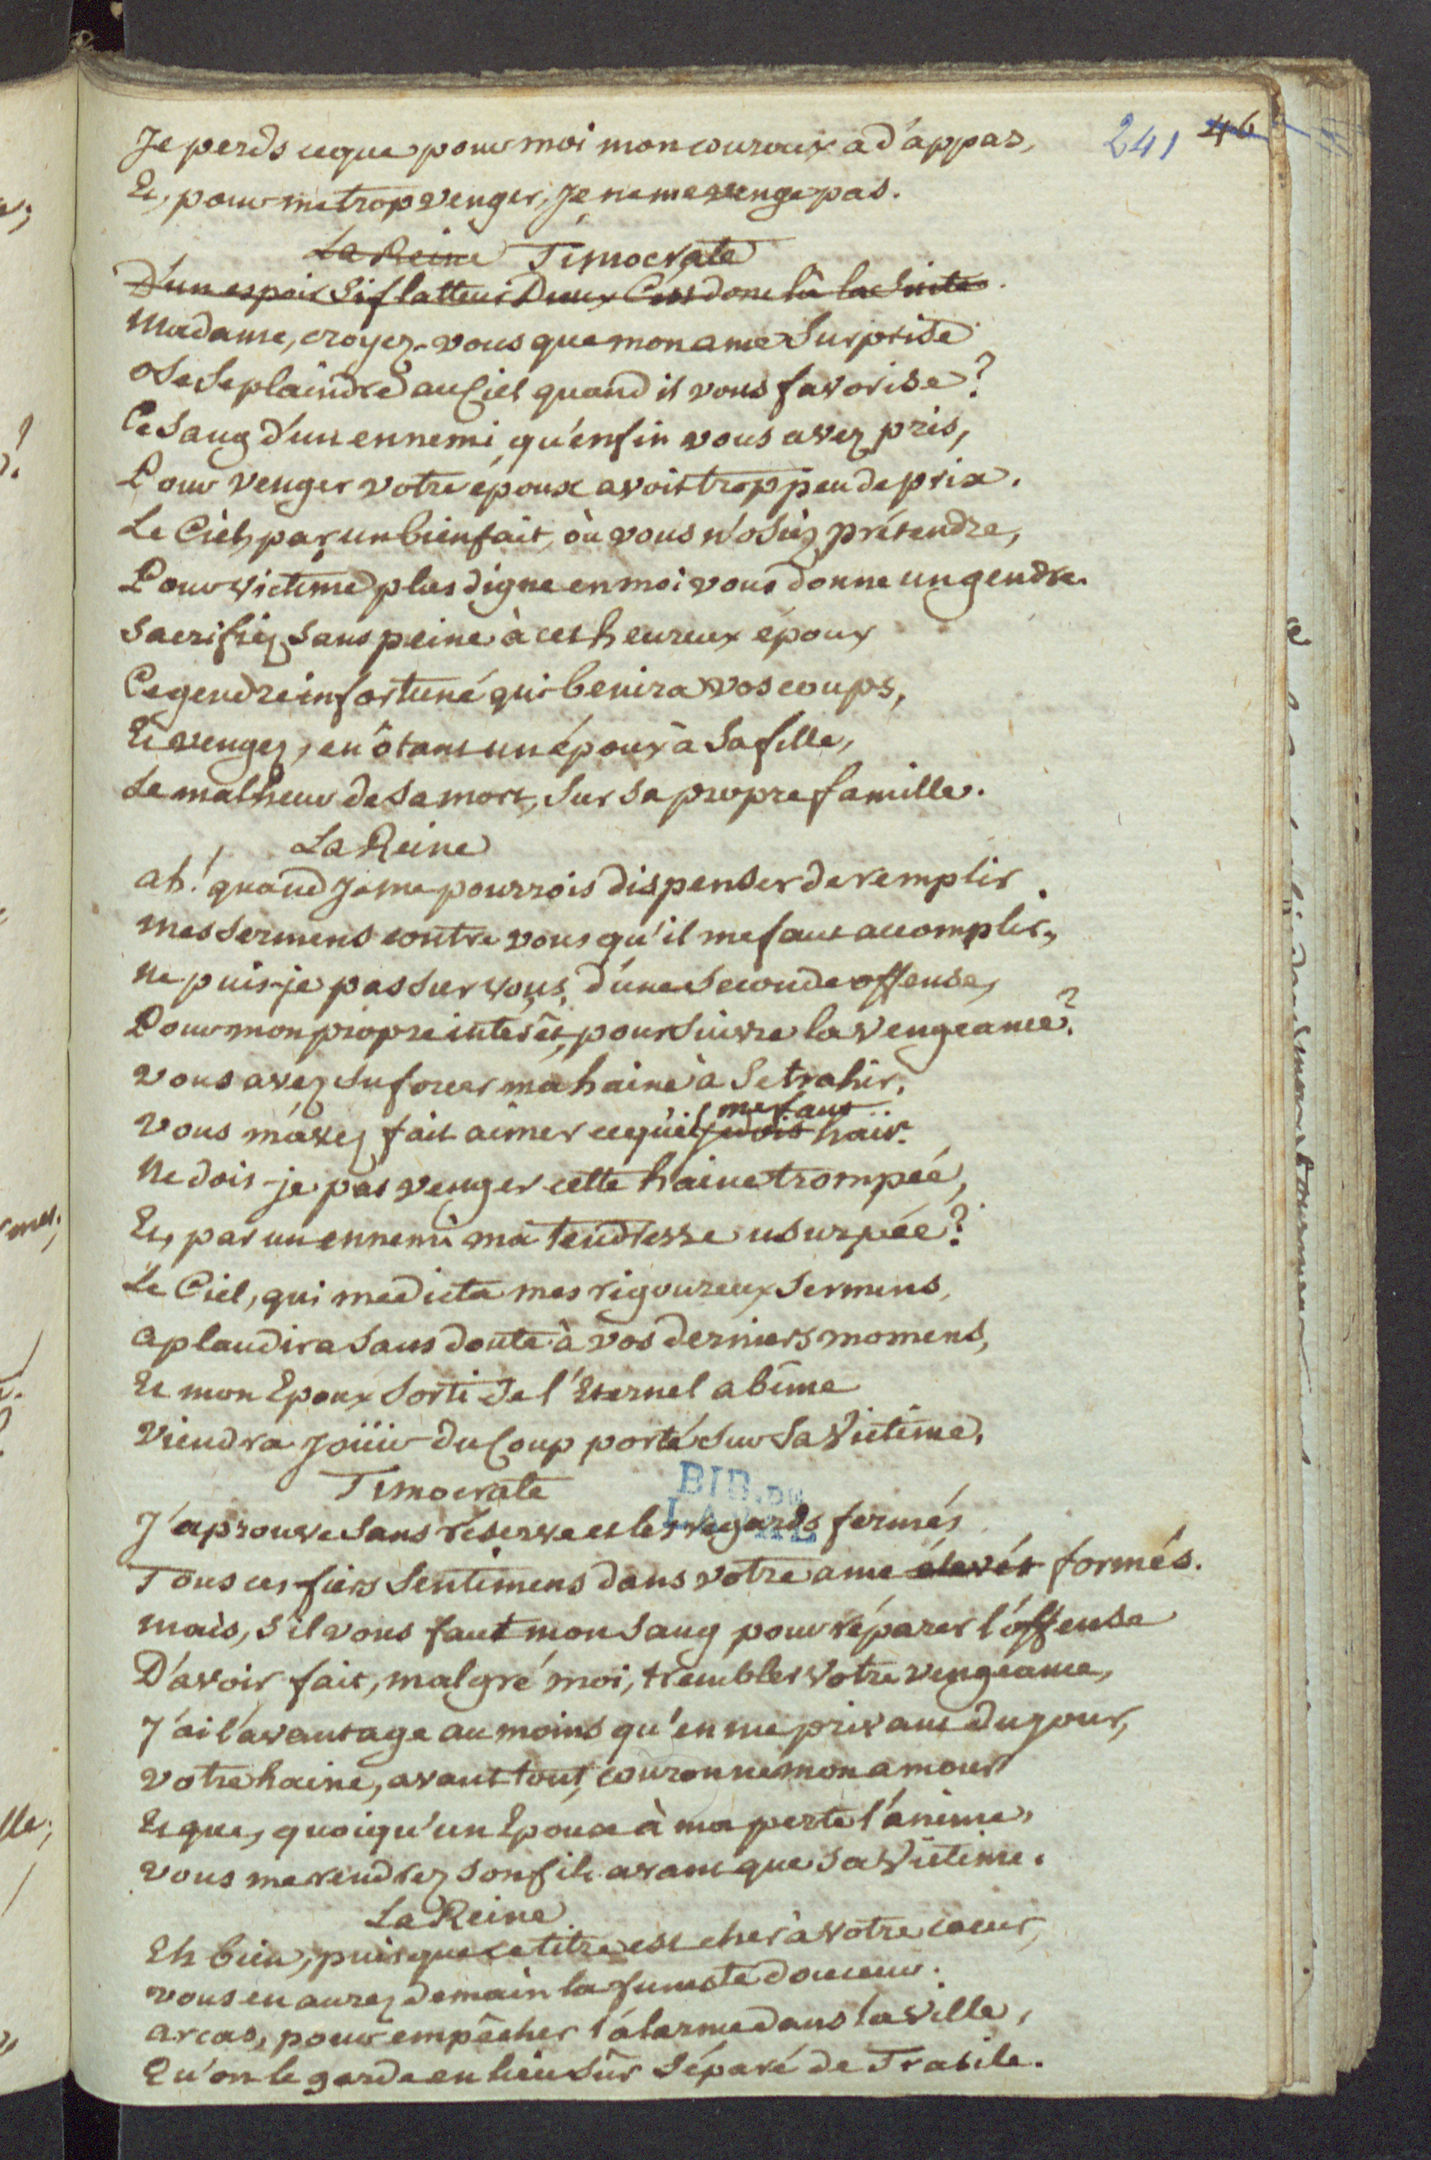 241 46
Je perds ce que pour moi mon couroux a d'appas,
Et, pour me trop venger, Je ne me venge pas.
La Reine Timocrate
D'un espoir si flatteur Dieux C'est donc là la Suite.
Madame, croyez-vous que mon ame Surprise
ose se plaindre au Ciel quand il vous favorise?
Ce Sang d'un ennemi, qu'enfin vous avez pris,
Pour venger votre époux avoit trop peu de prix.
Le Ciel, par un bienfait, où vous n'osiez prétendre,
Pour victime plus digne en moi vous donne un gendre.
Sacrifiez Sans peine à cet heureux époux
Ce gendre infortuné qui benira vos coups,
Et vengez, en ôtant un époux à Sa fille,
Le malheur de Sa mort, Sur Sa propre famille.
La Reine
ah! quand Je me pourrois dispenser de remplir
mes Sermens contre vous qu'il me faut accomplir,
ne puis-je pas Sur vous, d'une Seconde offense,
Pour mon propre intérêt, poursuivre la vengeance?
vous avez Su forcer ma haine à Se trahir,
me faut
vous m'avez fait aimer ce qu'il je dois haïr.
Ne dois-je pas venger cette haine trompée,
Et, par un ennemi ma tendresse usurpée?
Le Ciel, qui me dicta mes rigoureux Sermens,
aplaudira Sans doute à vos derniers momens,
Et mon Epoux Sorti de l'Eternel abîme
viendra Joüir du Coup porté Sur Sa Victime.
Timocrate
BIB. DE
LA VILLE
J'aprouve Sans réserve et les regards fermés
Tous ces fiers Sentimens dans votre ame élevés formés.
mais, s'il vous faut mon Sang pour réparer l'offense
D'avoir fait, malgré moi, trembler votre vengeance,
J'ai l'avantage au moins qu'en me privant du jour,
votre haine, avant tout, couronne mon amour
Et que, quoiqu'un Epoux à ma perte l'anime,
vous me rendrez Son fils avant que Sa Victime.
La Reine
Eh bien, puisque ce titre est cher à votre cœur,
vous en aurez demain la funeste douceur.
arcas, pour empêcher l'alarme dans la Ville,
Qu'on le garde en lieu Sûr Séparé de Trasile.